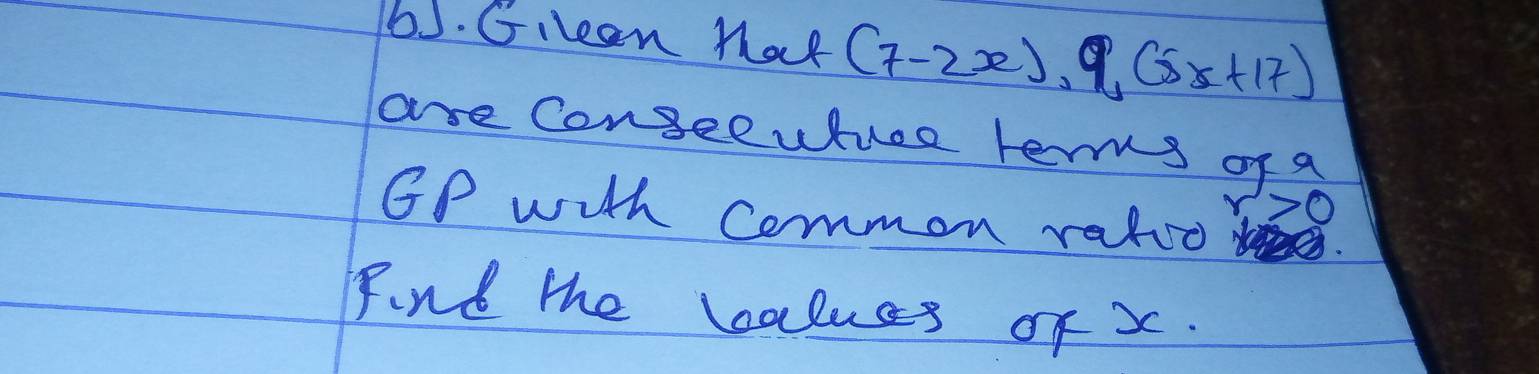 b). Given that (7-2x), 9, (5x+17)
are consecutive terms of a
GP with common ratio r>0.
Find the values of x.